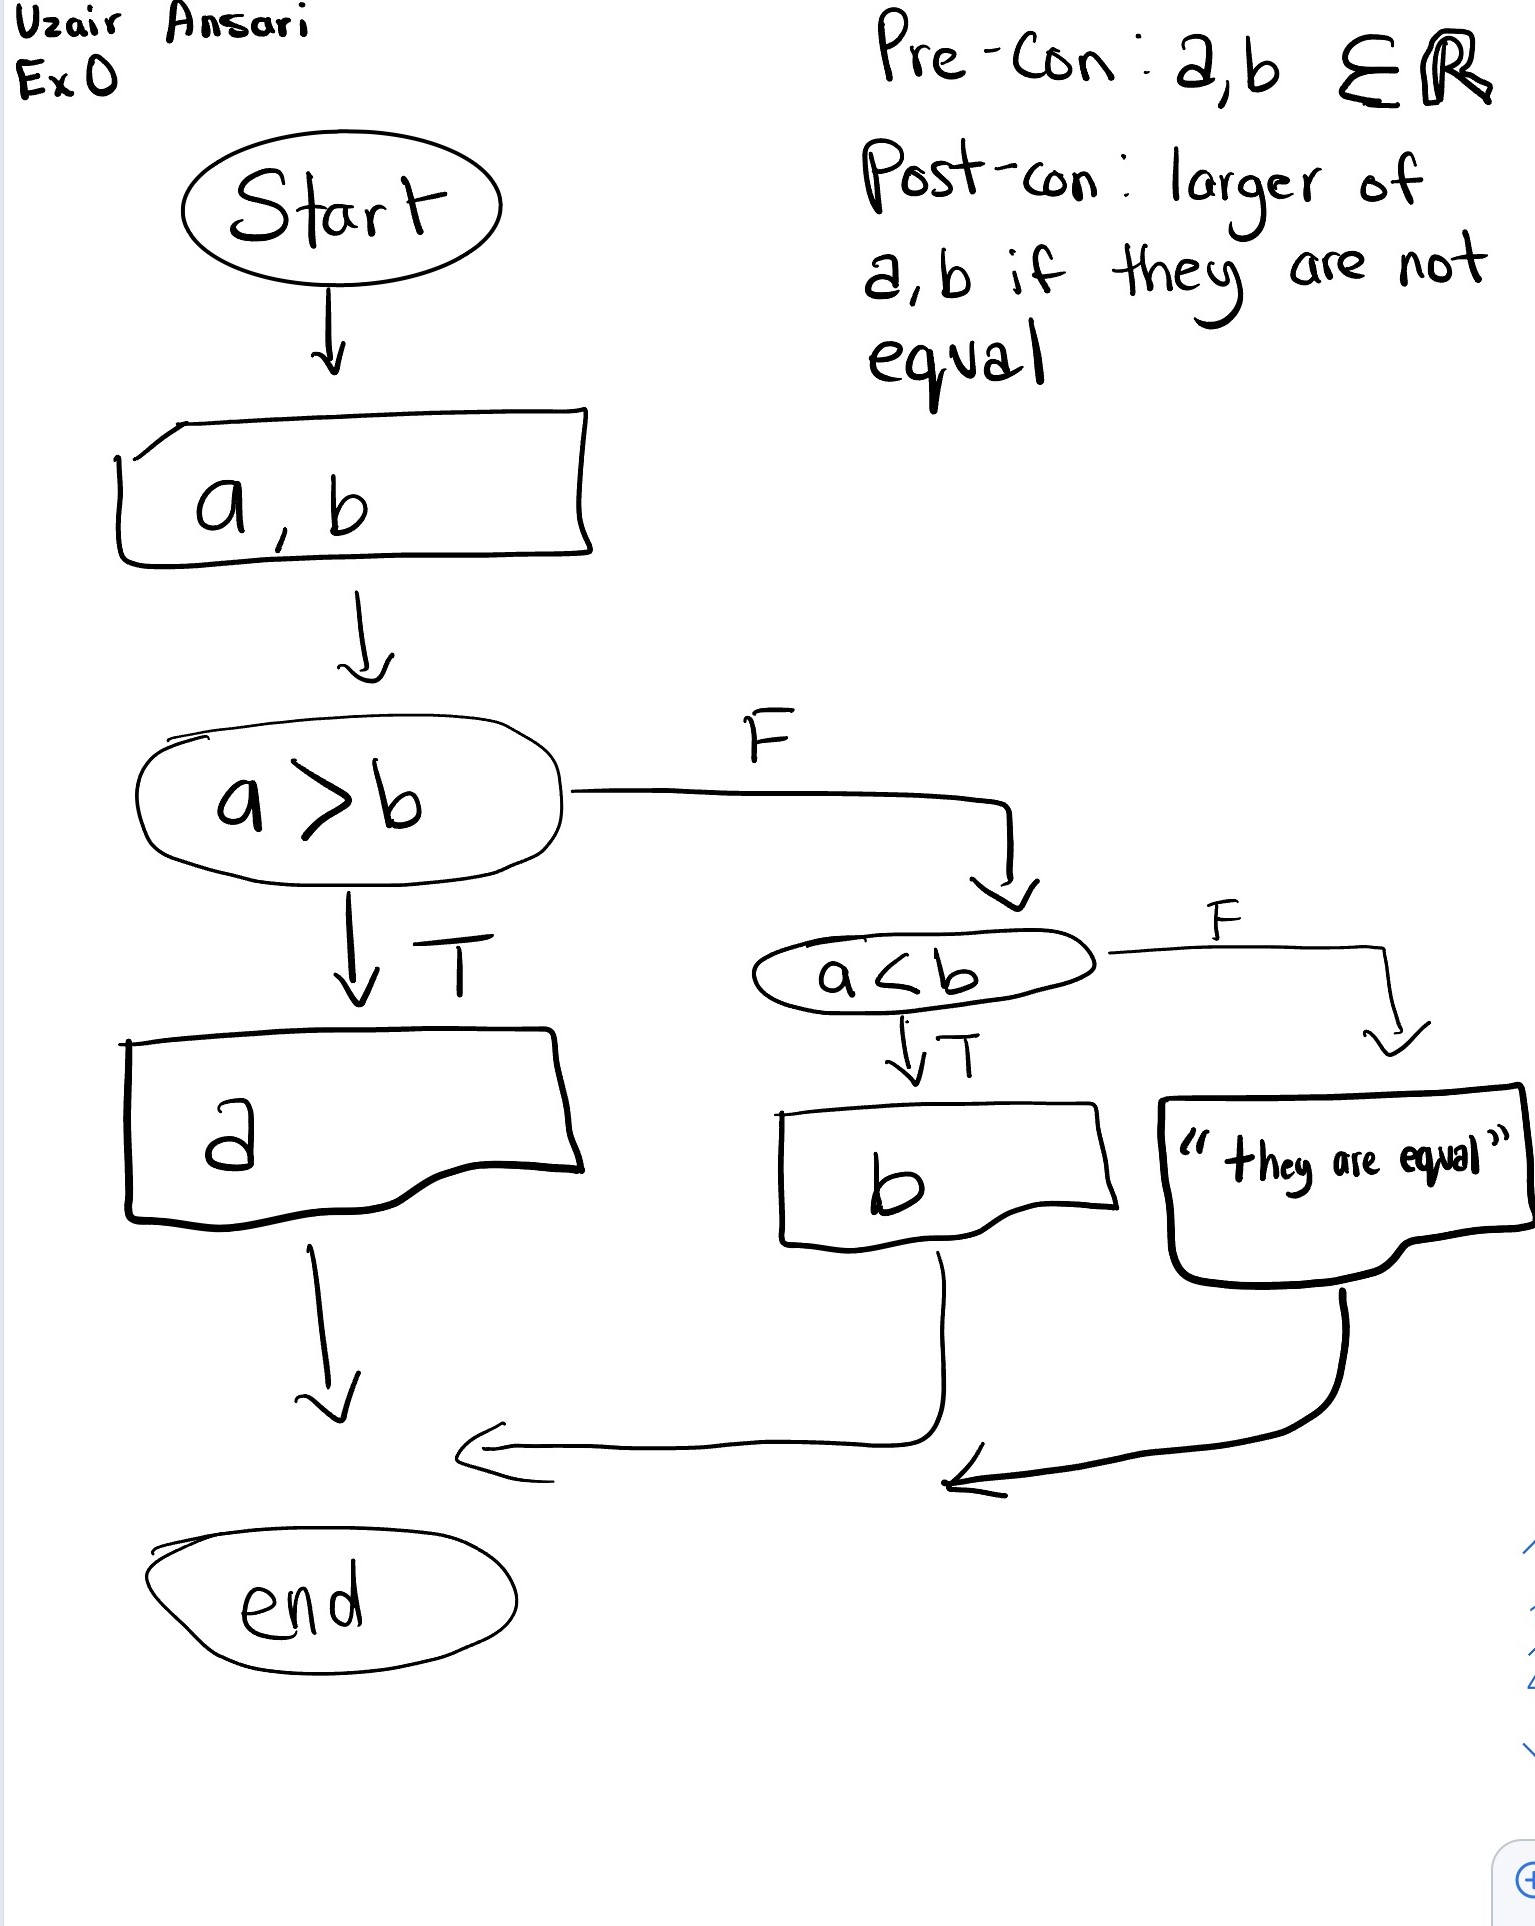 Uzair Ansari
Ex0
Pre-Con: a,b ∈ ℝ
Post-con: larger of
a,b if they are not
equal
Start
a, b
a > b
F
T
a < b
F
T
a
b
"they are equal"
end